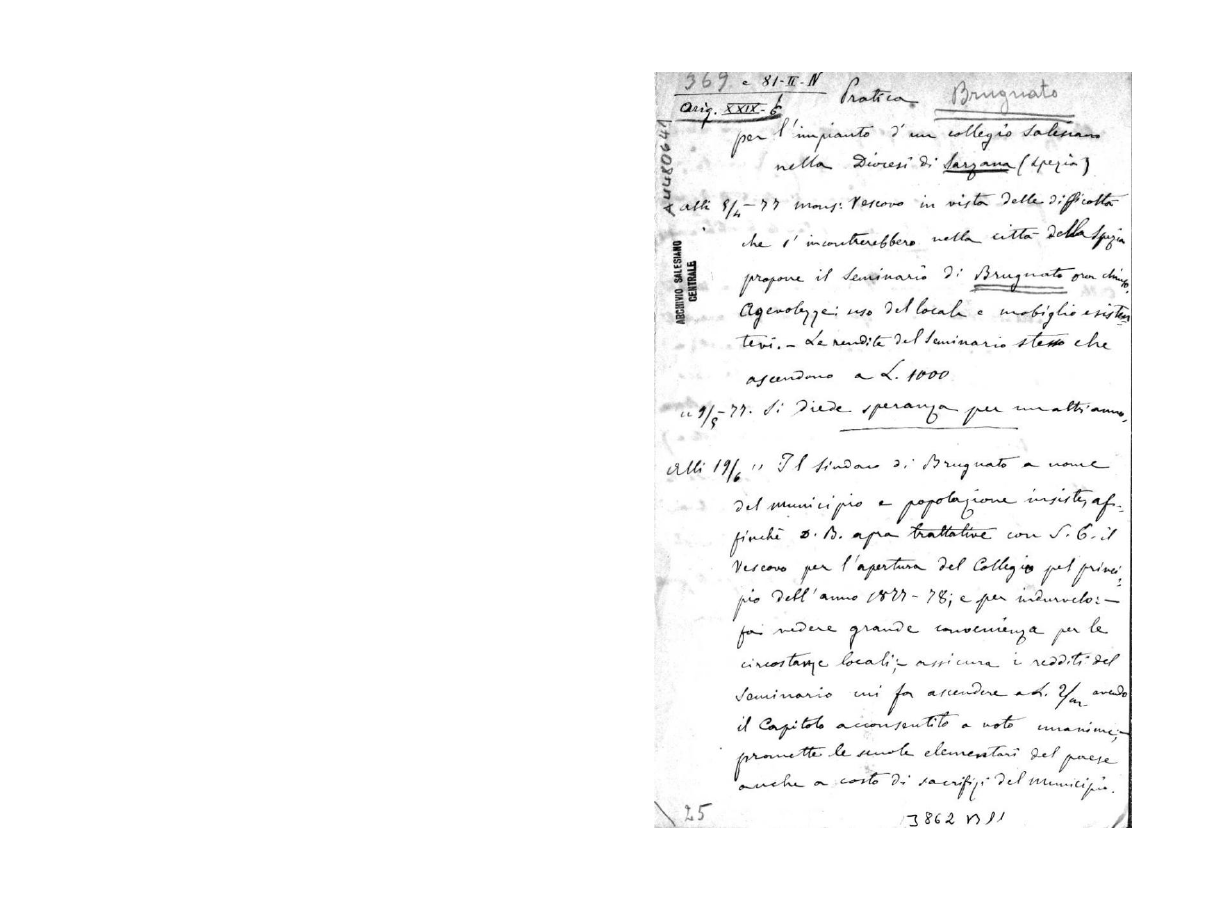 369. c 81-II-N
Orig. XXIX-6
Pratica Brugnato
per l'impianto d'un collegio salesiano
nella Diocesi di Sarzana (Spezia)
A4480641
ARCHIVIO SALESIANO
CENTRALE
alli 5/4-77 mons: Vescovo in vista delle difficoltà
che s'incontrerebbero nella città della Spezia
propone il Seminario di Brugnato ora chiuso.
Agevolezze: uso del locale e mobiglio esisten
tevi. - Le rendite del Seminario stesso che
ascendono a L. 1000
" 9/5-77. Si diede speranza per un altr'anno.
Alli 19/6 " Il sindaco di Brugnato a nome
del municipio e popolazione insiste, af-
finchè D. B. apra trattative con S. E. il
Vescovo per l'apertura del Collegio pel princi-
pio dell'anno 1877-78; e per indurvelo: -
fa vedere grande convenienza per le
circostanze locali; - assicura i redditi del
Seminario cui fa ascendere a L. 2/m avendo
il Capitolo acconsentito a voto unanime; -
promette le scuole elementari del paese
anche a costo di sacrifizi del Municipio.
25
3862 B11